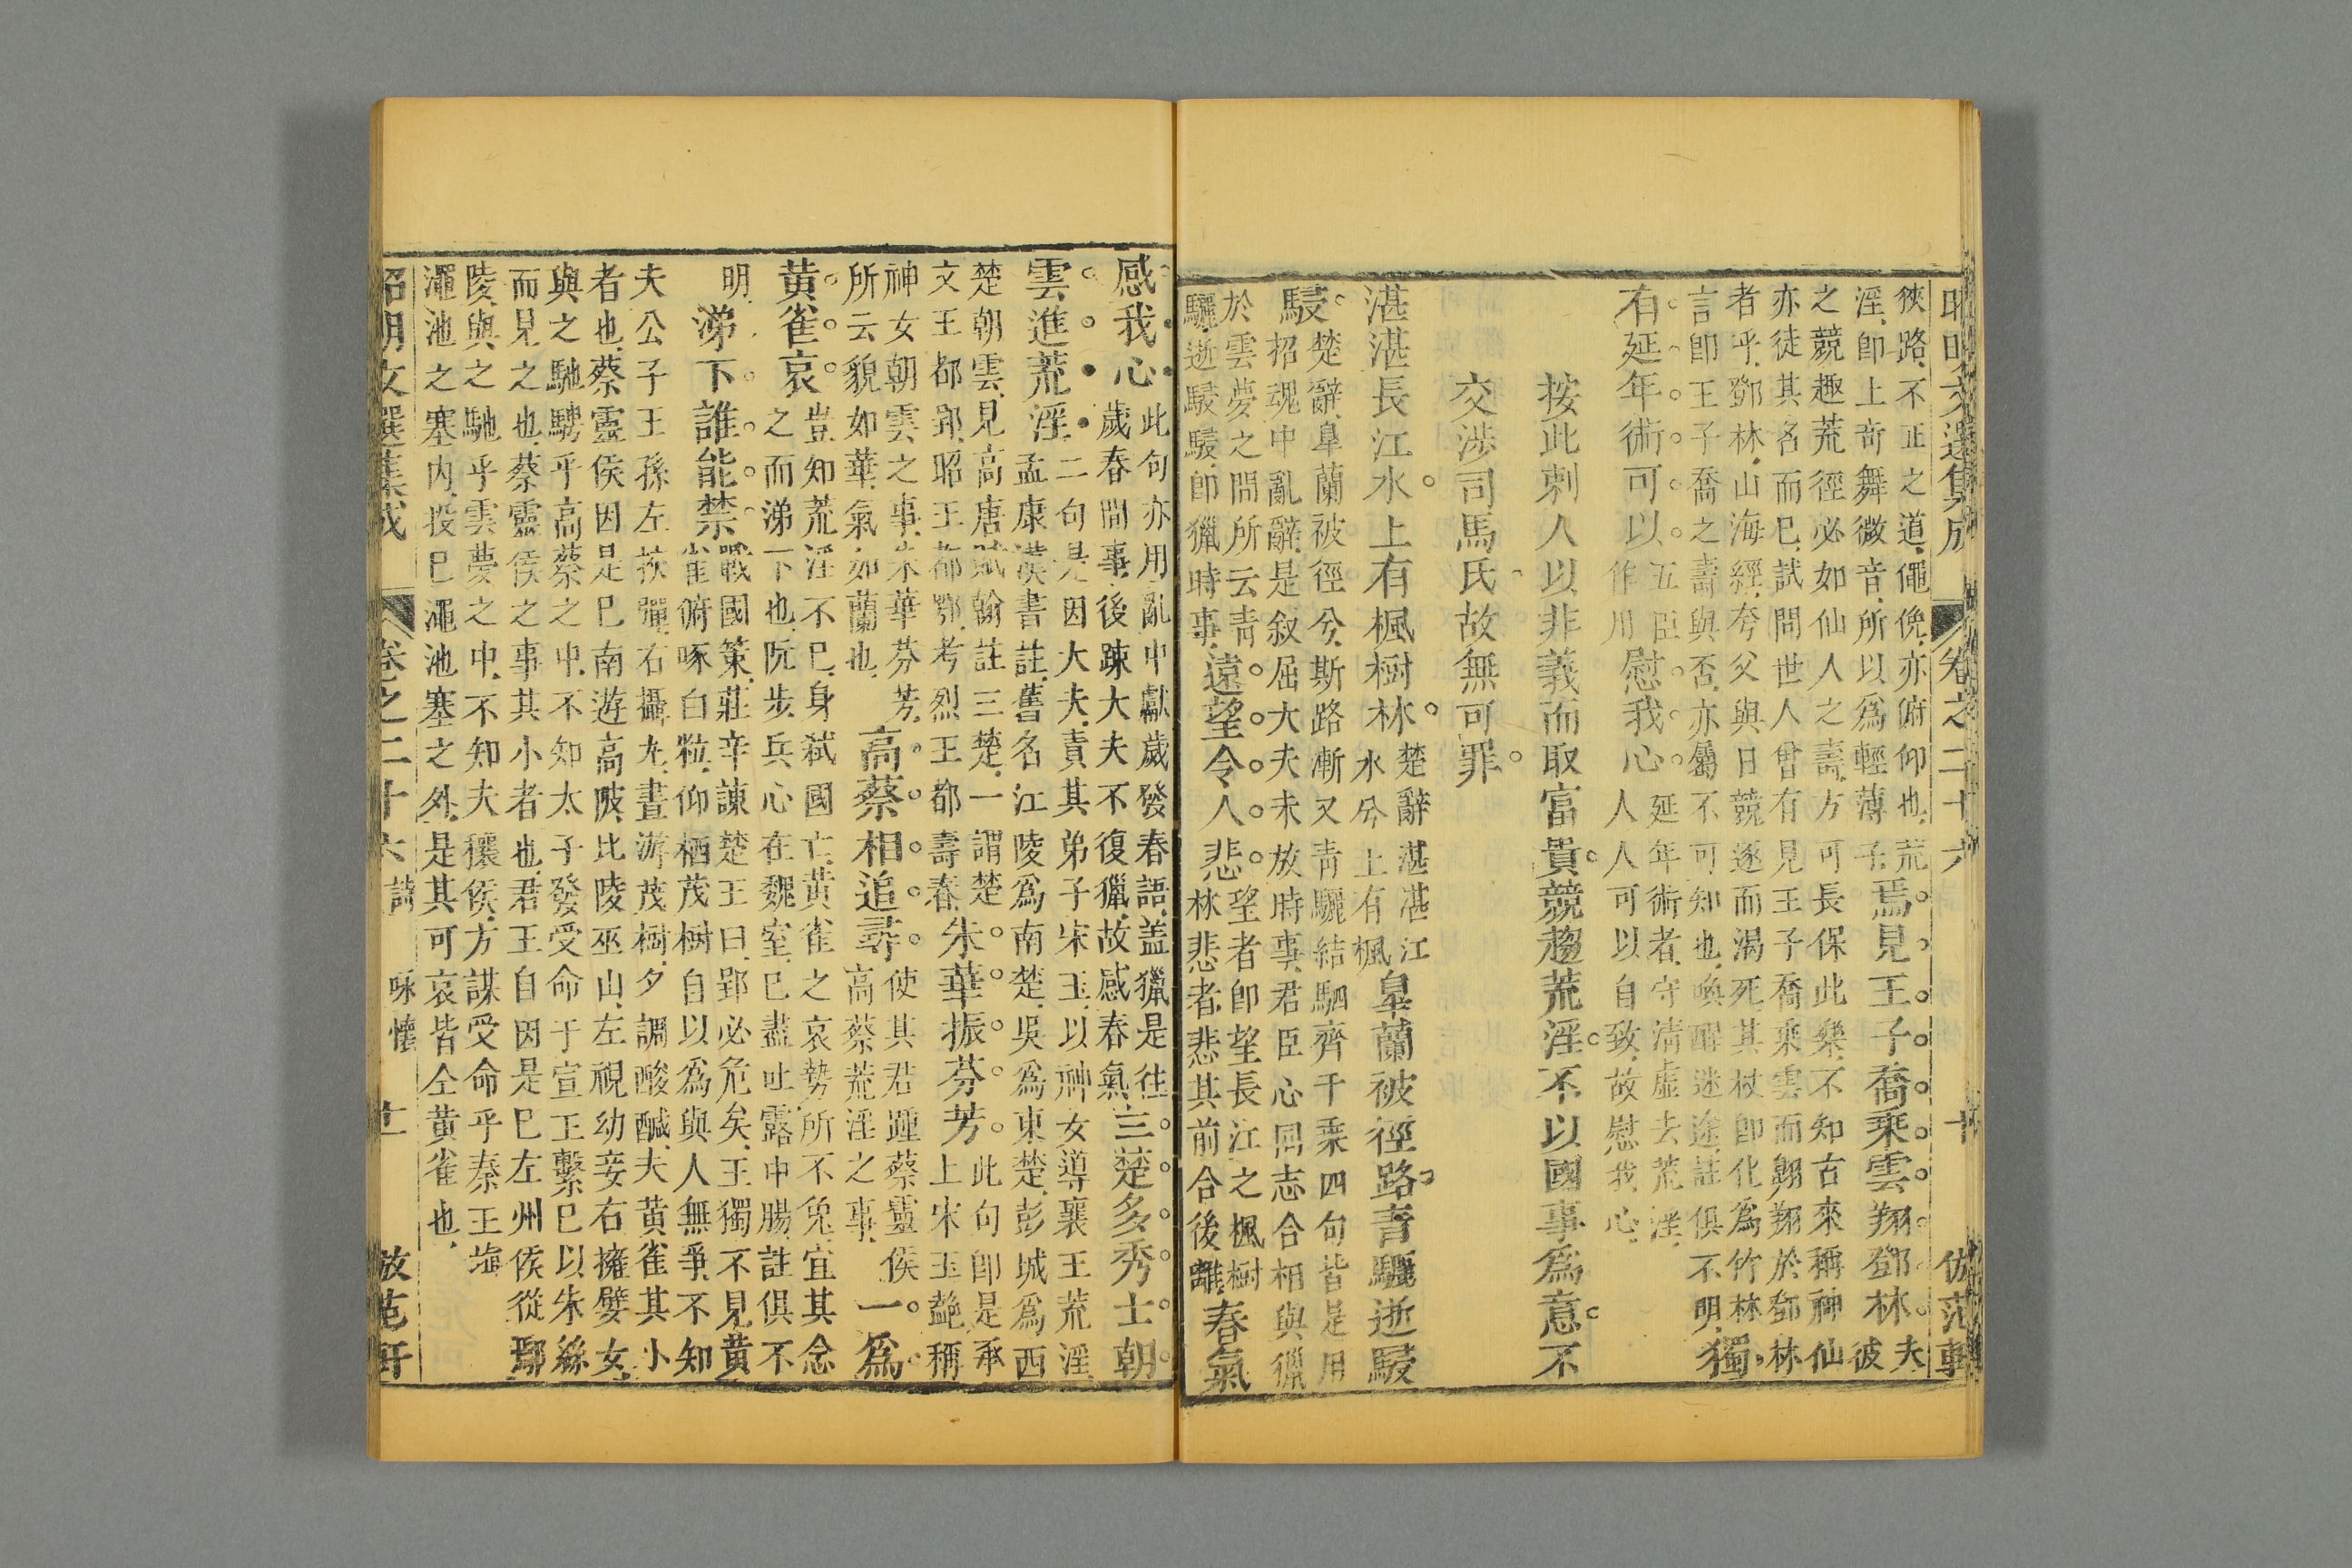 昭明文選集成 卷之二十六 十 倣范軒
狹路不正之道僶俛亦俯仰也荒
淫卽上奇舞微音所以爲輕薄子
焉見王子喬乘雲翔鄧林
夫
彼
之競趣荒徑必如仙人之壽方可長保此樂不知古來稱神仙
亦徒其名而已試問世人曾有見王子喬乘雲而翺翔於鄧林
者乎鄧林山海經夸父與日競逐而渴死其杖卽化爲竹林
言卽王子喬之壽與否亦屬不可知也喚醒迷途註俱不明
獨
有延年術可以
五臣
作用
慰我心
延年術者守淸虛去荒淫
人人可以自致故慰我心
按此刺人以非義而取富貴競趨荒淫不以國事爲意不
交涉司馬氏故無可罪
湛湛長江水上有楓樹林
楚辭湛湛江
水兮上有楓
皐蘭被徑路靑驪逝駸
駸
楚辭皐蘭被徑兮斯路漸又靑驪結駟齊千乘四句皆是用
招魂中亂辭是叙屈大夫未放時事君臣心同志合相與獵
於雲夢之間所云靑
驪逝駸駸卽獵時事
遠望令人悲
望者卽望長江之楓樹
林悲者悲其前合後離
春氣
感我心
此句亦用亂中獻歲發春語蓋獵是往
歲春間事後踈大夫不復獵故感春氣
三楚多秀士朝
雲進荒淫
二句是因大夫責其弟子宋玉以神女導襄王荒淫
孟康漢書註舊名江陵爲南楚吳爲東楚彭城爲西
楚朝雲見高唐賦翰註三楚一謂楚
文王都郢昭王都鄂考烈王都壽春
朱華振芬芳
此句卽是承
上宋玉艶稱
神女朝雲之事朱華芬芳
所云貌如華氣如蘭也
高蔡相追尋
使其君踵蔡靈侯
高蔡荒淫之事
一爲
黃雀哀
豈知荒淫不已身弑國亡黃雀之哀勢所不免宜其念
之而涕下也阮步兵心在魏室已盡吐露中腸註俱不
明
涕下誰能禁
戰國策莊辛諫楚王曰郢必危矣王獨不見黃
雀俯啄白粒仰栖茂樹自以爲與人無爭不知
夫公子王孫左挾彈右攝丸晝游茂樹夕調酸醎夫黃雀其小
者也蔡靈侯因是已南遊高陂比陵巫山左視幼妾右擁嬖女
與之馳騁乎高蔡之中不知太子發受命于宣王繫已以朱絲
而見之也蔡靈侯之事其小者也君王自因是已左州侯從鄢
陵與之馳乎雲夢之中不知夫穰侯方謀受命乎秦王塡
澠池之塞內投已澠池塞之外是其可哀皆仝黃雀也
昭明文選集成 卷之二十六 詩 咏懷 十一 倣范軒